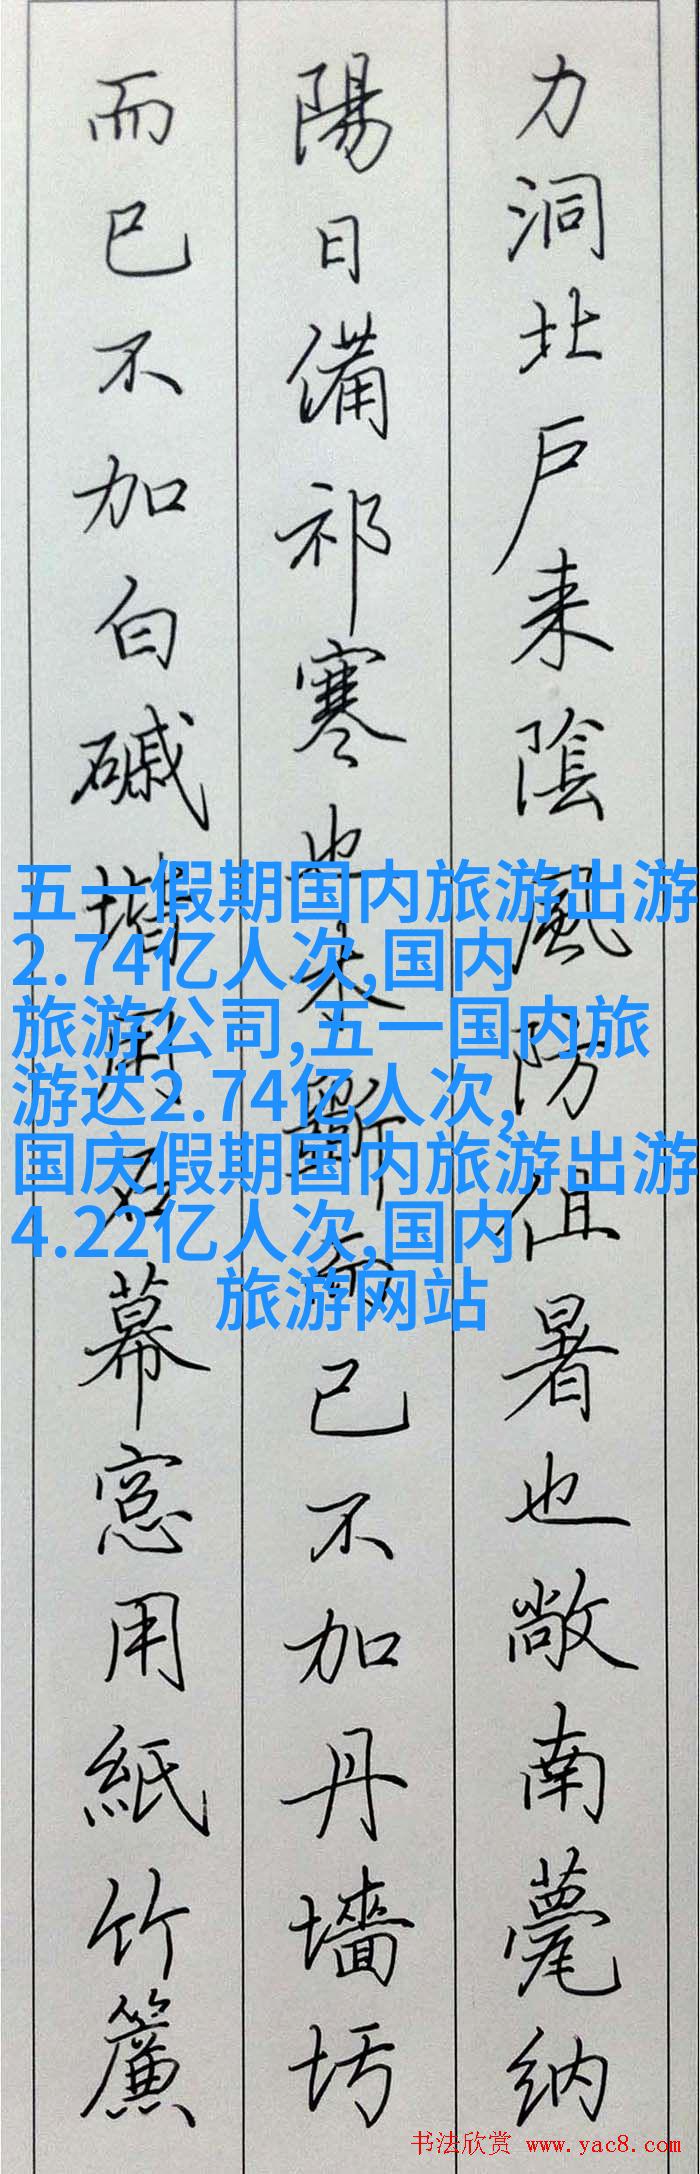 力洞北戶来陰風防徂暑也敞南甍纳
陽日備祁寒也木斲而已不加丹墻圬
而已不加白磩堦用石幕窓用紙竹簾
五一假期国内旅游出游
2.74亿人次,国内
旅游公司,五一国内旅
游达2.74亿人次,
国庆假期国内旅游出游
4.22亿人次,国内
旅游网站
书法欣赏 www.yac8.com